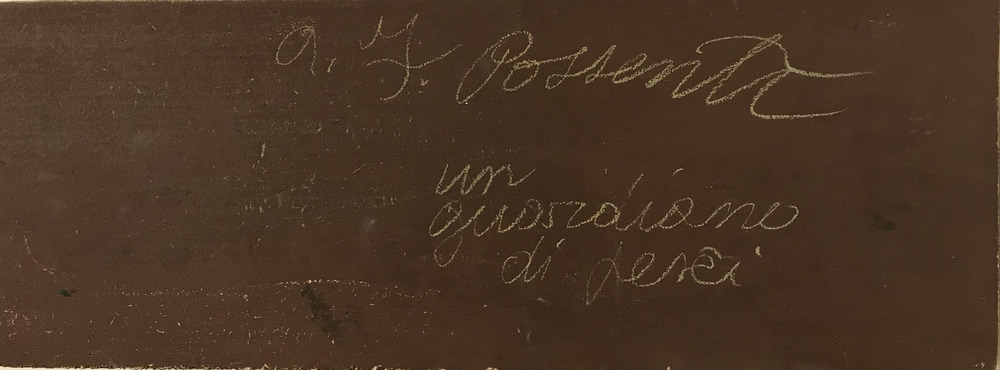 a. F. Possenti
un
guardiano
di pesci